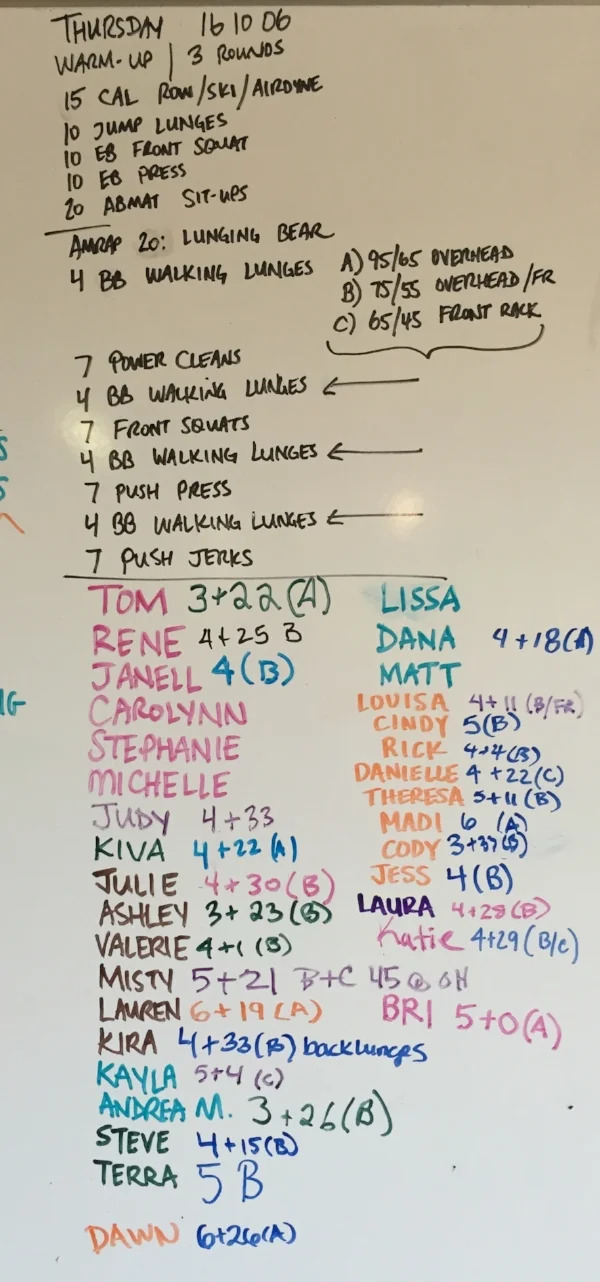 THURSDAY 16 10 06
WARM-UP | 3 ROUNDS
15 CAL ROW/SKI/AIRDYNE
10 JUMP LUNGES
10 EB FRONT SQUAT
10 EB PRESS
20 ABMAT SIT-UPS
AMRAP 20: LUNGING BEAR
4 BB WALKING LUNGES
A) 95/65 OVERHEAD
B) 75/55 OVERHEAD/FR
C) 65/45 FRONT RACK
7 POWER CLEANS
4 BB WALKING LUNGES
7 FRONT SQUATS
4 BB WALKING LUNGES
7 PUSH PRESS
4 BB WALKING LUNGES
7 PUSH JERKS
TOM 3+22 (A)
RENE 4+25 B
JANELL 4 (B)
CAROLYNN
STEPHANIE
MICHELLE
JUDY 4+33
KIVA 4+22 (A)
JULIE 4+30 (B)
ASHLEY 3+23 (B)
VALERIE 4+1 (B)
MISTY 5+21 B+C 45@OH
LAUREN 6+19 (A)
KIRA 4+33 (B) back lunges
KAYLA 5+4 (C)
ANDREA M. 3+26 (B)
STEVE 4+15 (B)
TERRA 5 B
DAWN 6+26 (A)
LISSA
DANA 4+18 (A)
MATT
LOUISA 4+11 (B/FR)
CINDY 5 (B)
RICK 4+4 (B)
DANIELLE 4+22 (C)
THERESA 5+11 (B)
MADI 6 (A)
CODY 3+37 (B)
JESS 4 (B)
LAURA 4+28 (B)
Katie 4+29 (B/C)
BRI 5+0 (A)